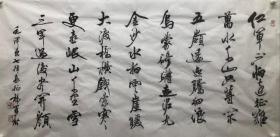 紅軍不怕遠征難
萬水千山只等閒
五嶺逶迤騰細浪
烏蒙磅礴走泥丸
金沙水拍雲崖暖
大渡橋橫鐵索寒
更喜岷山千里雪
三軍過後盡開顏
毛澤東七律長征